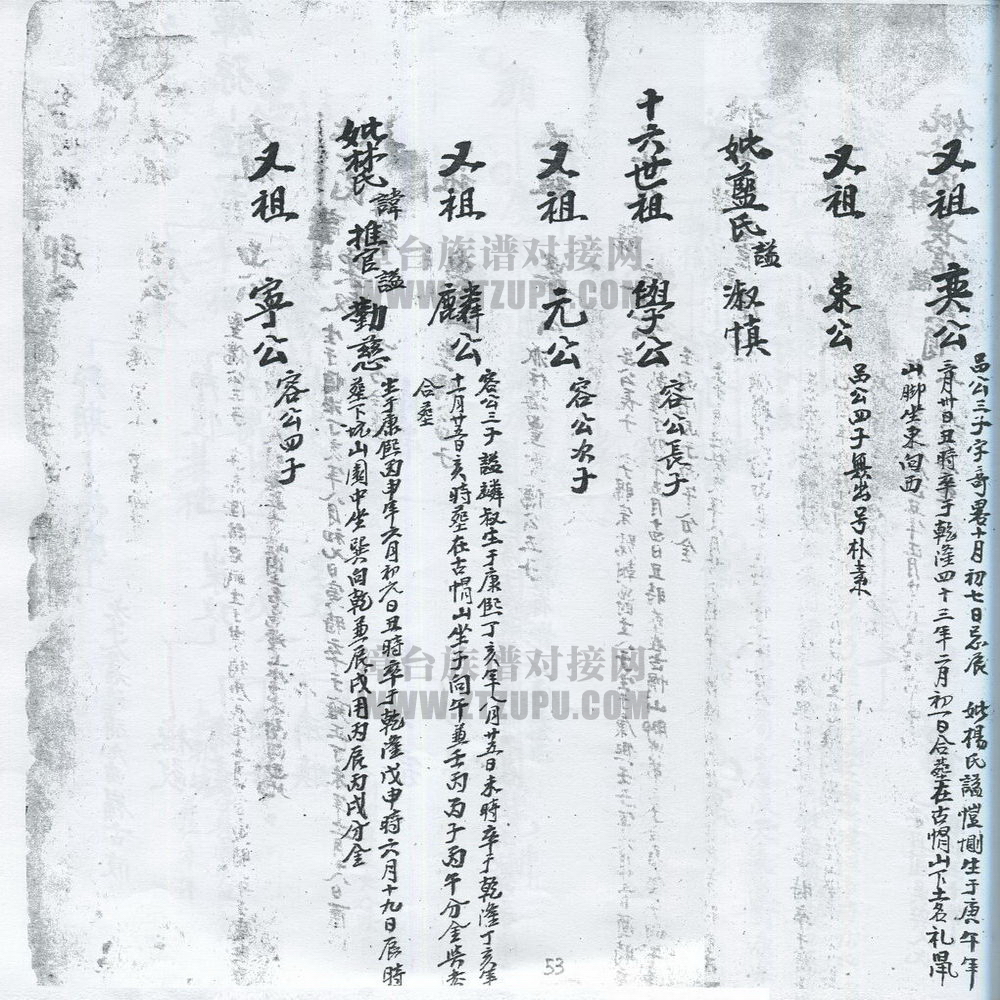 又祖 奕公
吕公三子字奇畧十月初七日忌辰 妣楊氏諡愷惻生于庚午年
二月廿日丑時卒于乾隆四十三年二月初一日合葬在古帽山下土名礼
山脚坐東向西
又祖 束公
吕公四子無出号朴素
妣藍氏諡淑慎
十六世祖 學公
容公長子
又祖 元公
容公次子
又祖 麟公
容公三子諡麟叔生于康熙丁亥年八月廿五日未時卒于乾隆丁亥年
十一月廿五日亥時葬在古帽山坐子向午兼壬丙丙子丙午分金
合葬
妣林氏諱推官諡勤慈
生于康熙丙申年六月初六日丑時卒于乾隆戊申時六月十九日辰時
葬下坑山園中坐巽向乾兼辰戌用丙辰丙戌分金
又祖 寧公
容公四子
章台族谱对接网
WWW.ZTZUPU.COM
章台族谱对接网
WWW.ZTZUPU.COM
53